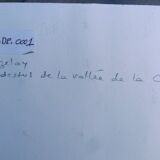 DP.0001
zelay
dessus de la vallée de la C